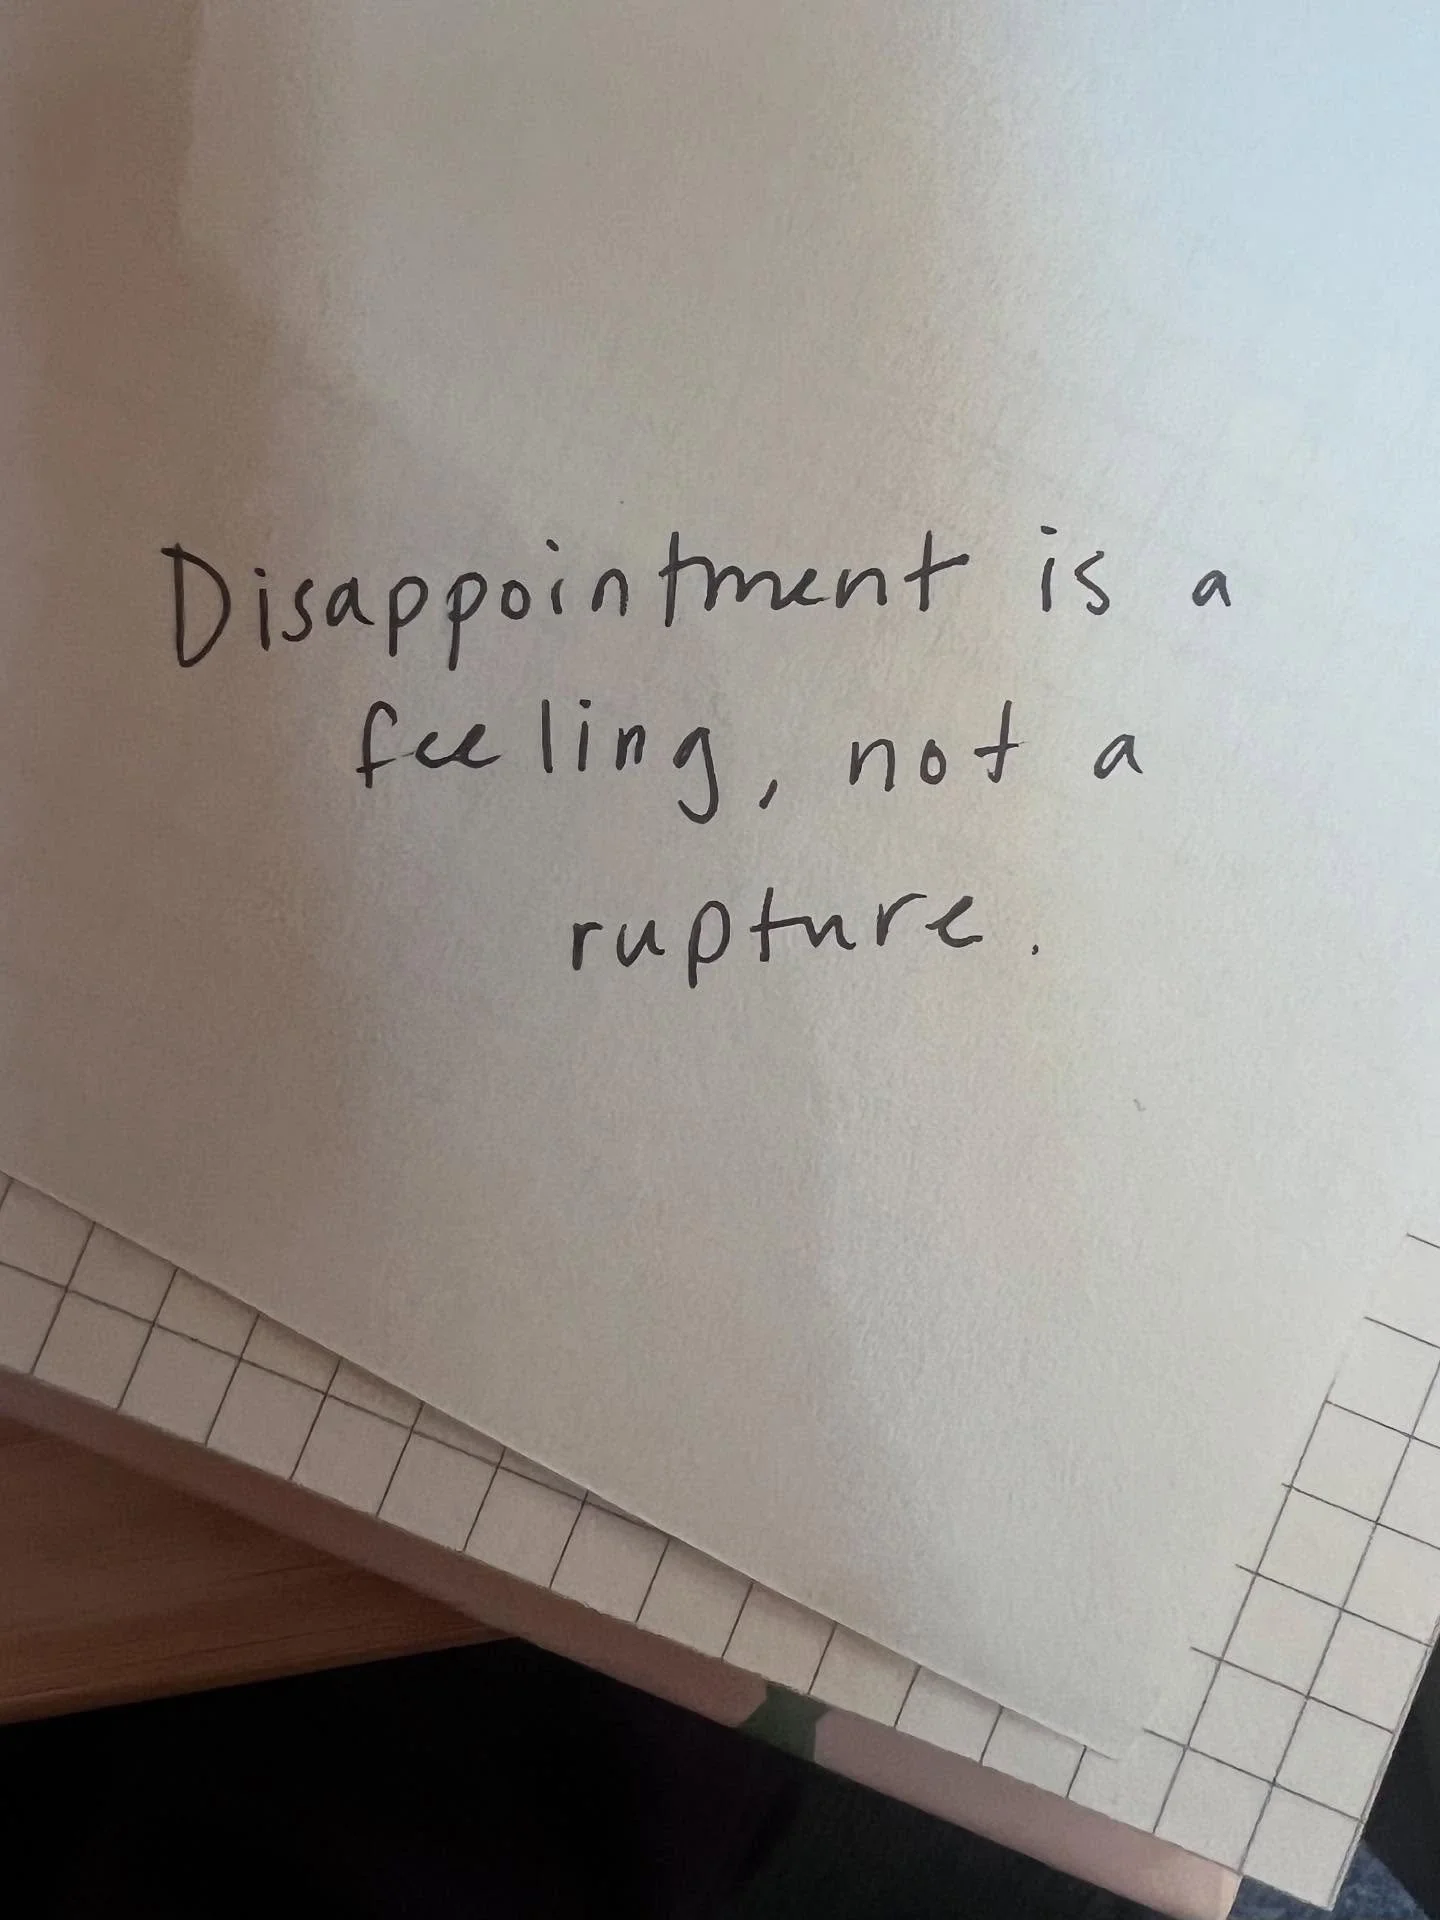 Disappointment is a
feeling, not a
rupture.